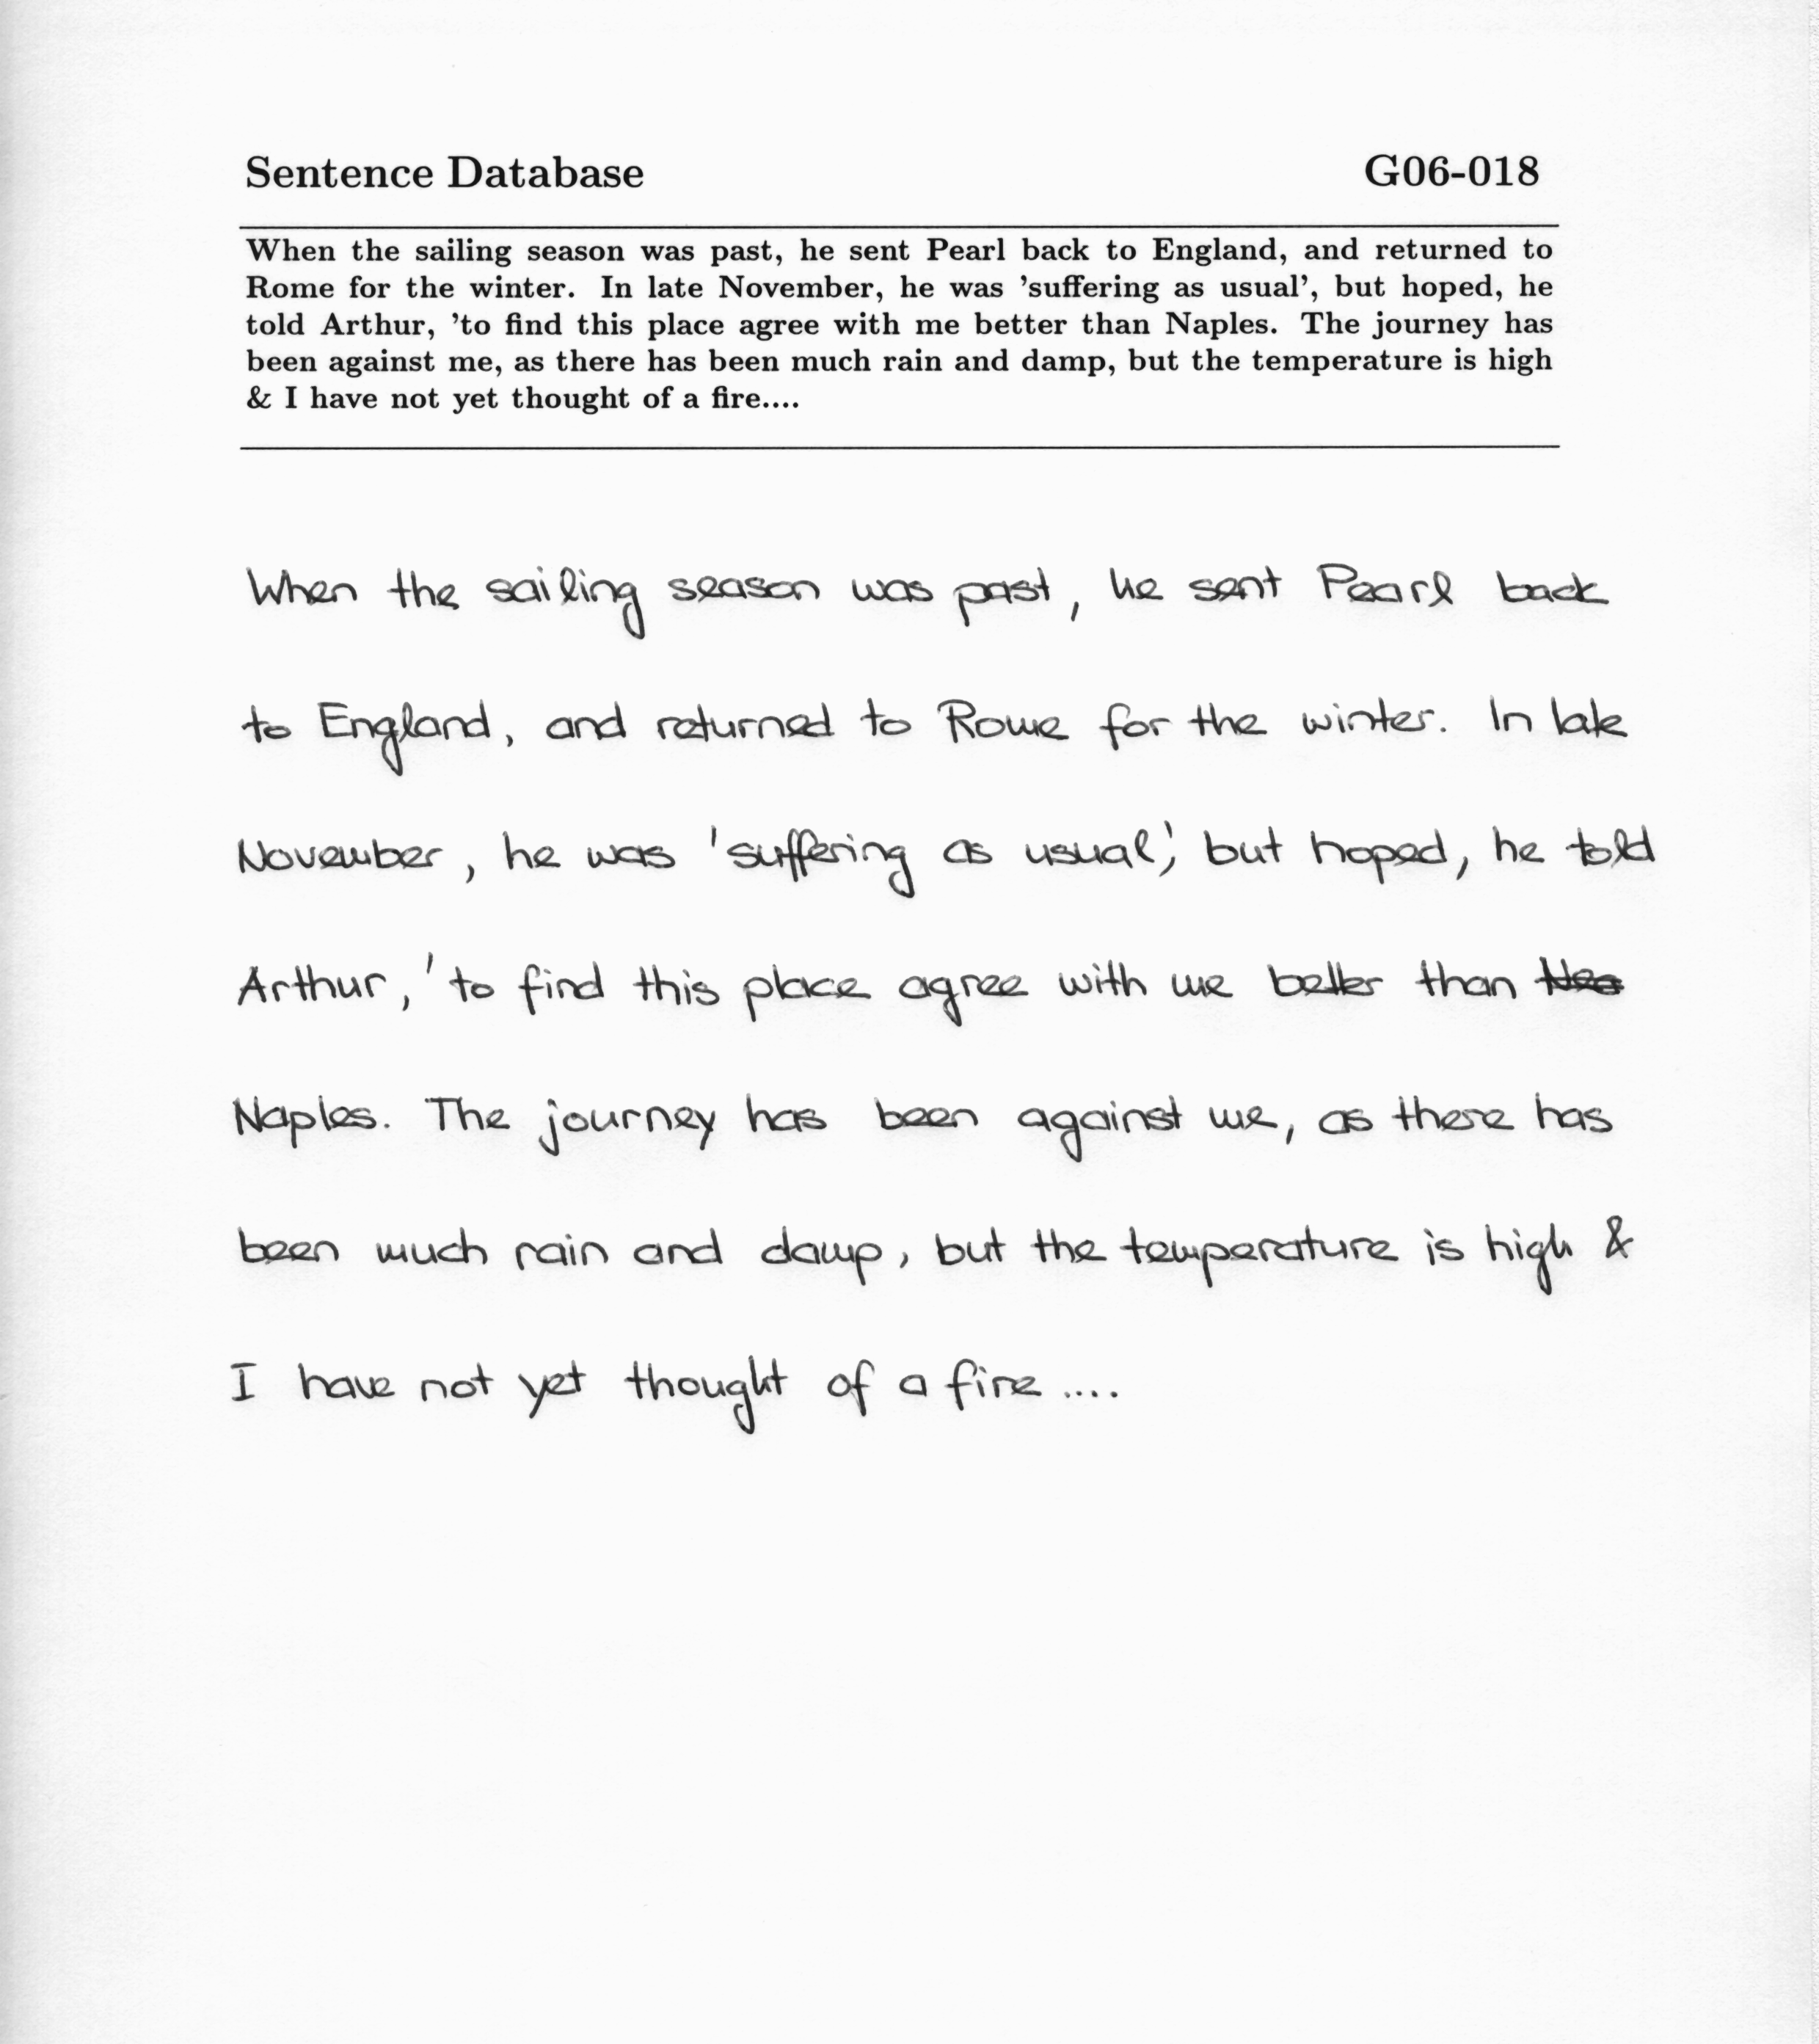 Sentence Database G06-018
When the sailing season was past, he sent Pearl back to England, and returned to
Rome for the winter. In late November, he was 'suffering as usual', but hoped, he
told Arthur, 'to find this place agree with me better than Naples. The journey has
been against me, as there has been much rain and damp, but the temperature is high
& I have not yet thought of a fire....
When the sailing season was past, he sent Pearl back
to England, and returned to Rome for the winter. In late
November, he was 'suffering as usual', but hoped, he told
Arthur, 'to find this place agree with me better than
Naples. The journey has been against me, as there has
been much rain and damp, but the temperature is high &
I have not yet thought of a fire ....